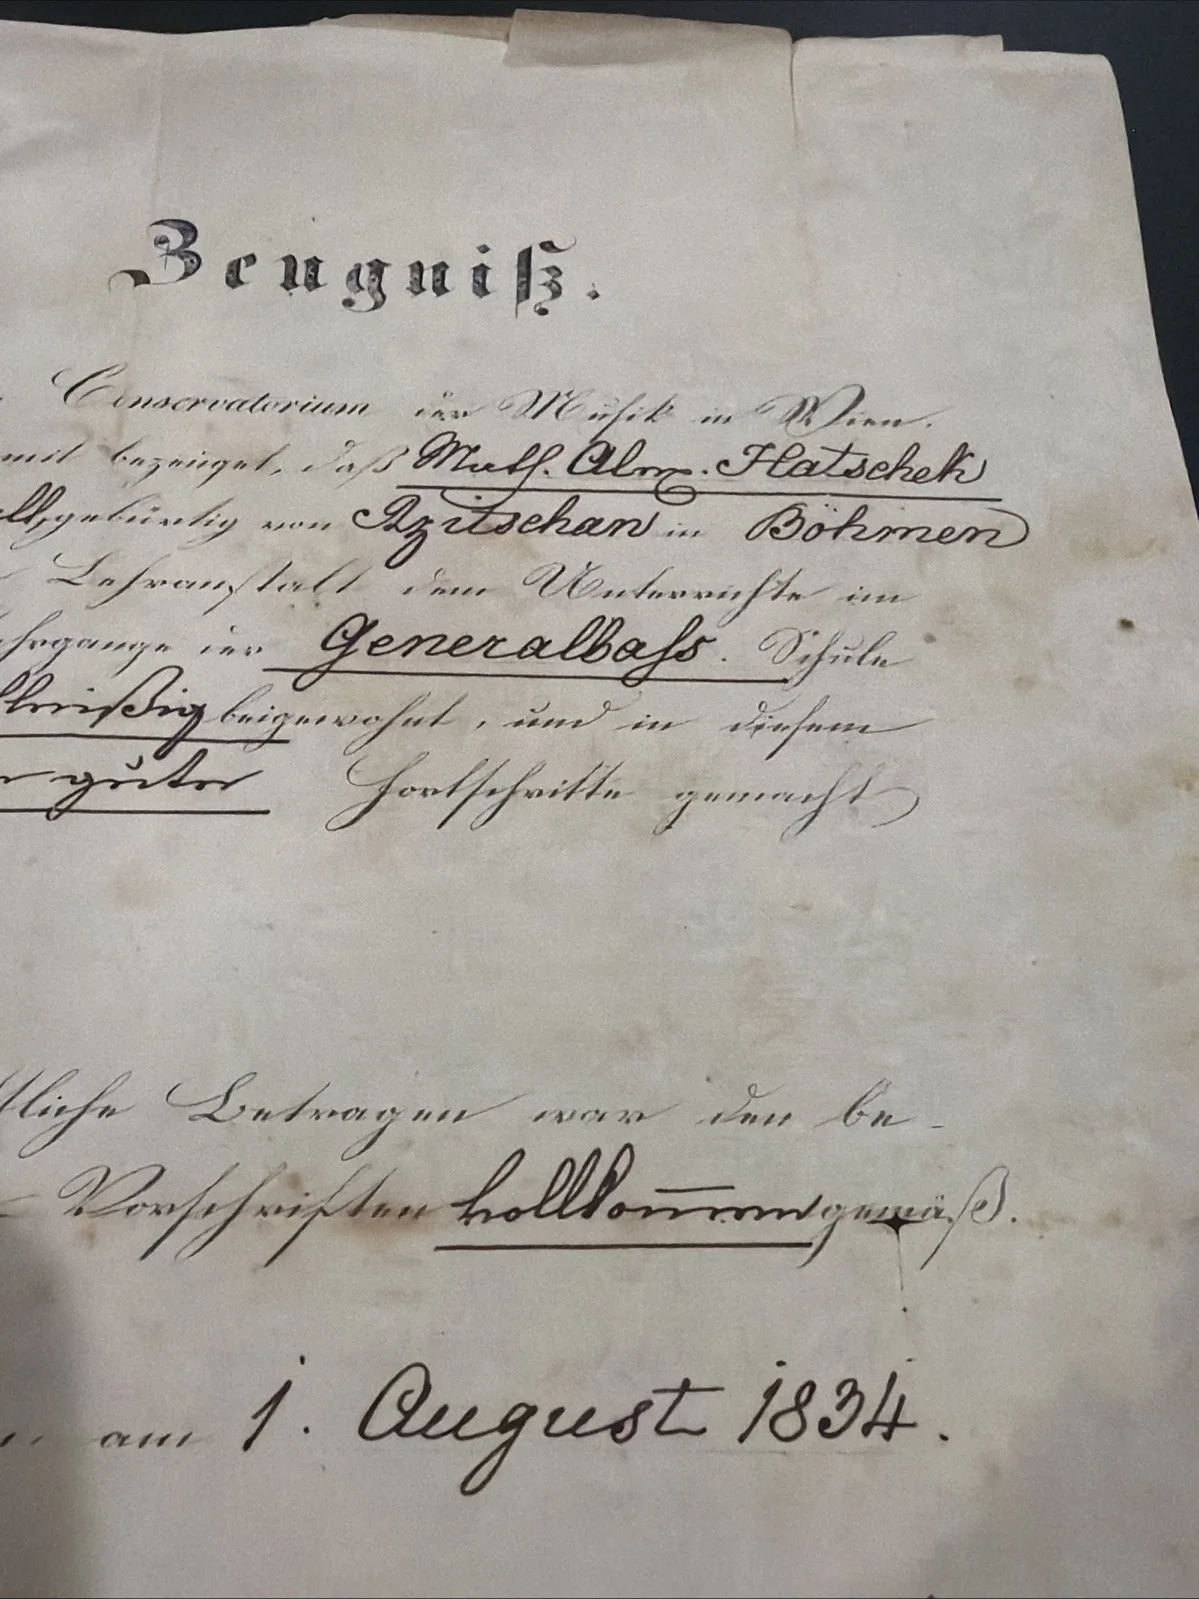 Zeugniß.
Conservatorium der Musik in Wien.
mit bezeuget, daß Math. Hatschek
gebürtig von Rzitschan in Böhmen
Lehranstalt dem Unterrichte im
hrgange der Generalbaſs. Schule
fleißig beigewohnt, und in diesem
guter Fortschritte gemacht
tliche Betragen war den be-
Vorschriften vollkom̅en gemäß.
am 1. August 1834.